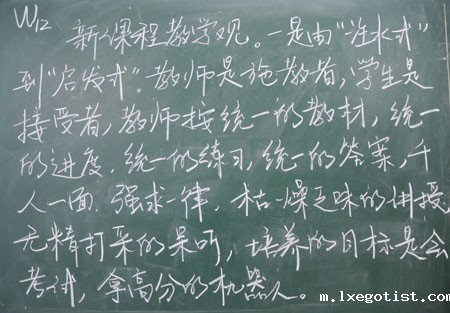 W12
新课程教学观。一是由“注水式”
到“启发式”。教师是施教者,学生是
接受者,教师按统一的教材,统一
的进度,统一的练习,统一的答案,千
人一面,强求一律,枯燥乏味的讲授,
无精打采的呆听,培养的目标是会
考试,拿高分的机器人。
m.lxegotist.com